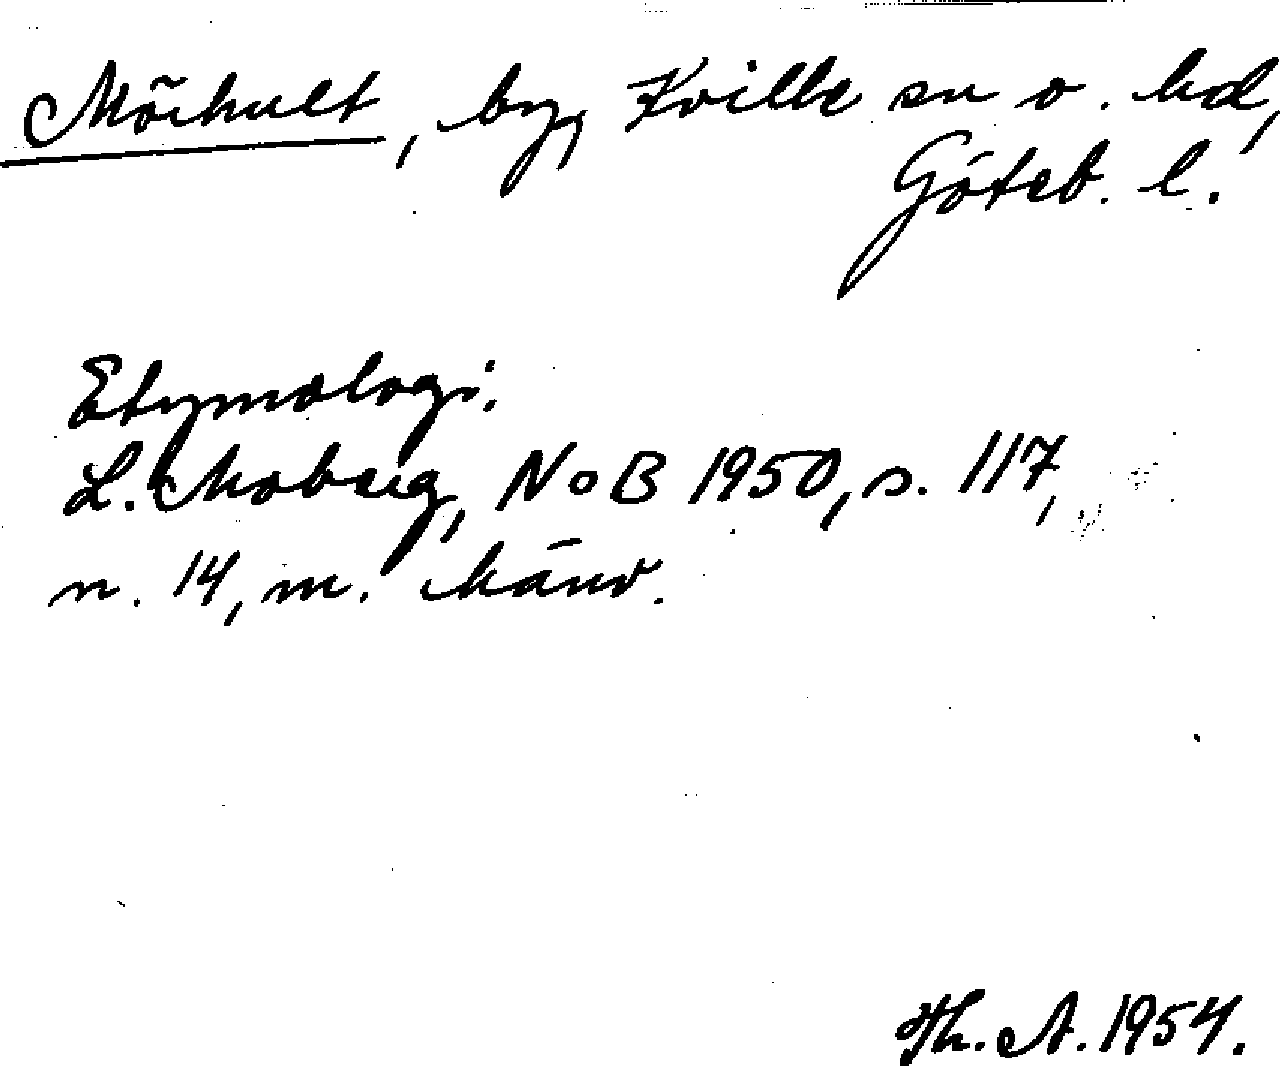 Mörhult, by, Kville sn o. hd,
Göteb. l.
Etymologi:
L. Moberg, NoB 1950, s. 117,
n. 14, m. hänv.
Th. A. 1954.